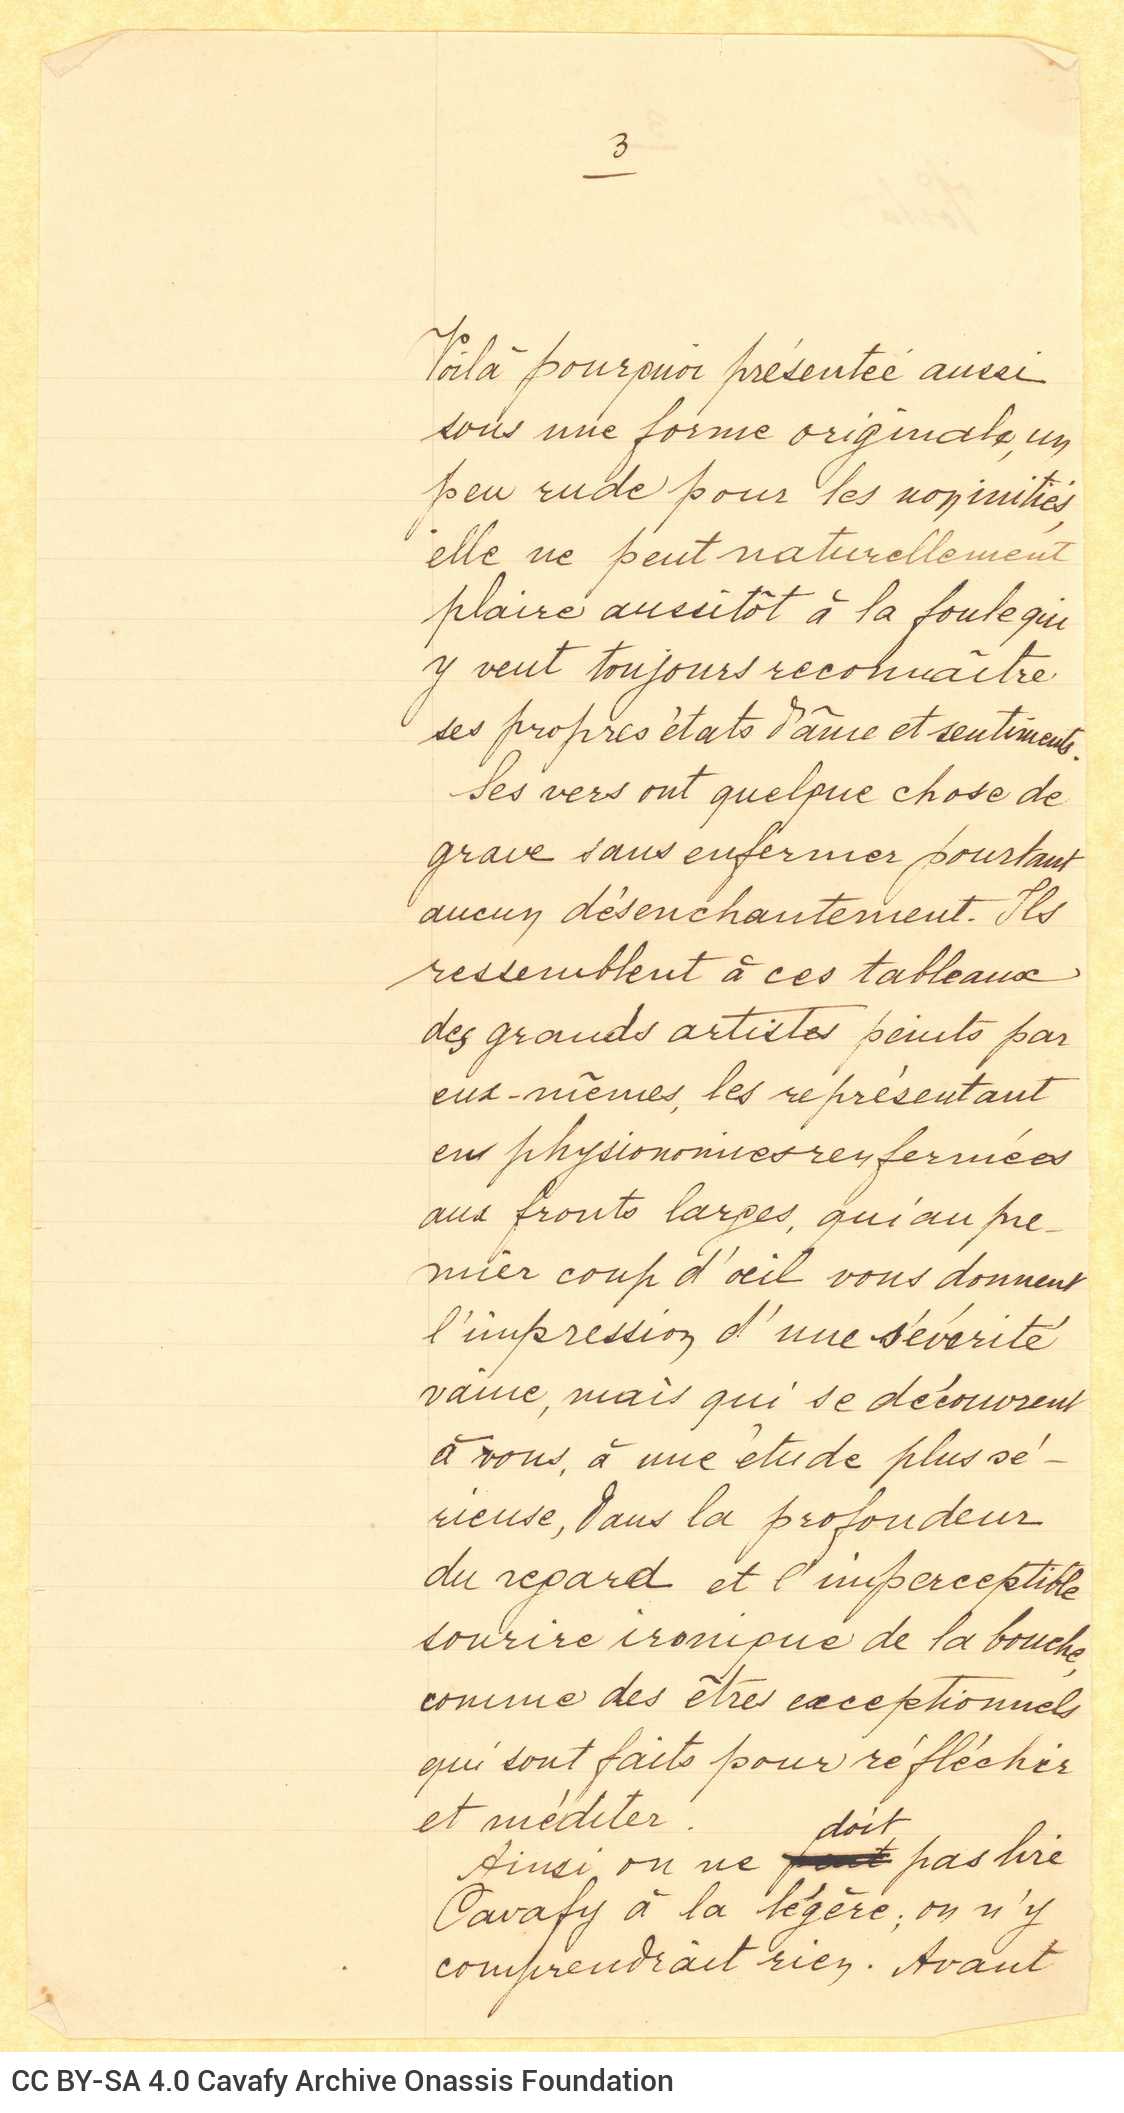 3
Voilà pourquoi présentée aussi
sous une forme originale, un
peu rude pour les non initiés,
elle ne peut naturellement
plaire aussitôt à la foule qui
y veut toujours reconnaître
ses propres états d'âme et sentiments.
Ses vers ont quelque chose de
grave sans enfermer pourtant
aucun désenchantement. Ils
ressemblent à ces tableaux
des grands artistes peints par
eux-mêmes, les représentant
en physionomies renfermées
aux fronts larges, qui au pre-
mier coup d'œil vous donnent
l'impression d'une sévérité
vaine, mais qui se découvrent
à vous, à une étude plus sé-
rieuse, dans la profondeur
du regard et l'imperceptible
sourire ironique de la bouche,
comme des êtres exceptionnels
qui sont faits pour réfléchir
et méditer.
doit
Ainsi on ne peut pas lire
Cavafy à la légère; on n'y
comprendrait rien. Avant
CC BY-SA 4.0 Cavafy Archive Onassis Foundation